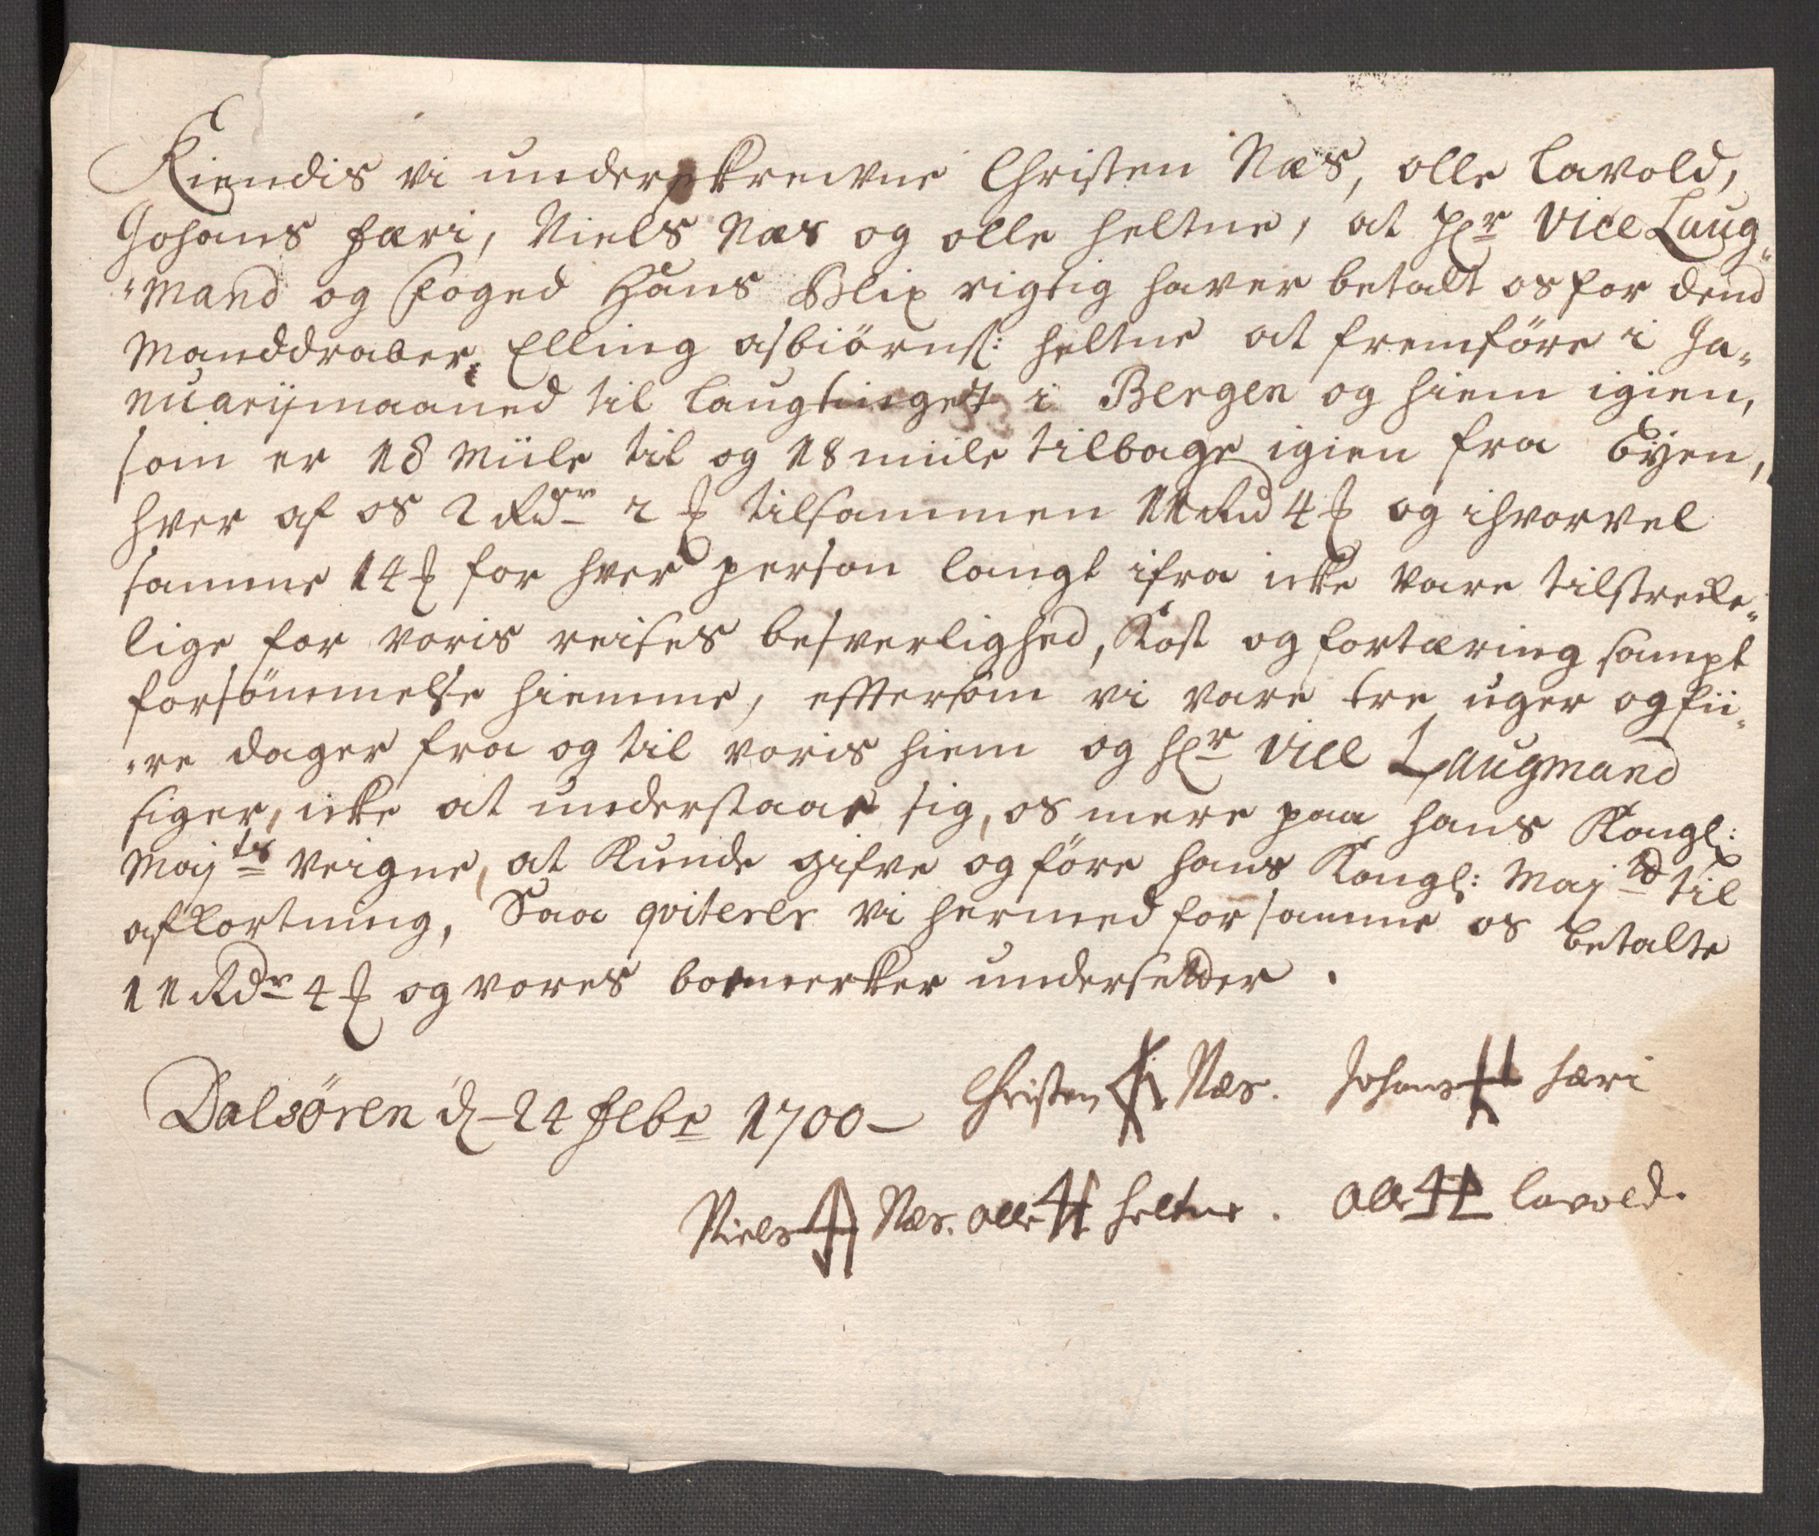 Kiendis vi underskrevne Christen Næs, olle Lavold,
Johans færi, Niels Næs og olle heltne, at hr Vice Laug-
mand og Foged Hans Blix rigtig haver betalt os for dend
Manddraber, Elling asbiörns: heltne at fremföre i Ja-
nuarij maaned til laugtinget i Bergen og hiem igien,
som er 18 Miile til og 18 miile tilbage igien fra Byen,
hver af os 2 Rdr 2 ꝶ tilsammen 11 Rd 4 ꝶ og ihvorvel
samme 14 ꝶ for hver person langt ifra icke vare tilstrecke-
lige for voris reises besverlighed, Kost og fortæring sampt
forsömmelse hiemme, eftersom vi vare tre uger og fii-
re dager fra og til voris hiem og hr Vice Laugmand
siger, icke at understaae sig, os mere paa hans Kongl:
Majts veigne, at Kunde gifve og före hans Kongl: Majts til
afkortning, Saa qviterer vi hermed for samme os betalte
11 Rdr 4 ꝶ og vores bomerker undersetter.
Dalsören d. 24 Febr 1700
Christen Næs. Johans færi
Niels Næs. olle heltne. olle lavold.